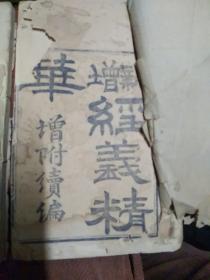 增經義精
華
增附續編